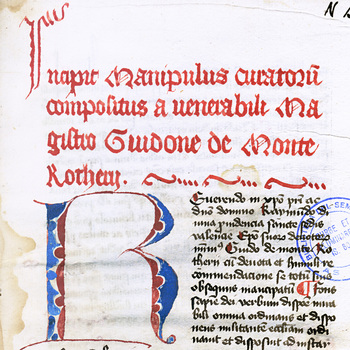 N
Jhus
Incipit Manipulus curatorū
compositus a uenerabili Ma
gistro Guidone de Monte
Rotherij.
Reuerendo in xp̄o pri̅ ac
dn̅o domino Raymūdo di
uina prudencia sancte sedis
valencie. Ep̄o suorū deuotorū
Guido de monte Ro
therii cū deuota et humili re
comendatione se totū suis
obsequiis mancipatū ¶ fons
sapiē dei verbum dispoē mira
bili omnia ordinans et dispo
nens militantē eccliam ordi
nauit et disposuit ad instar